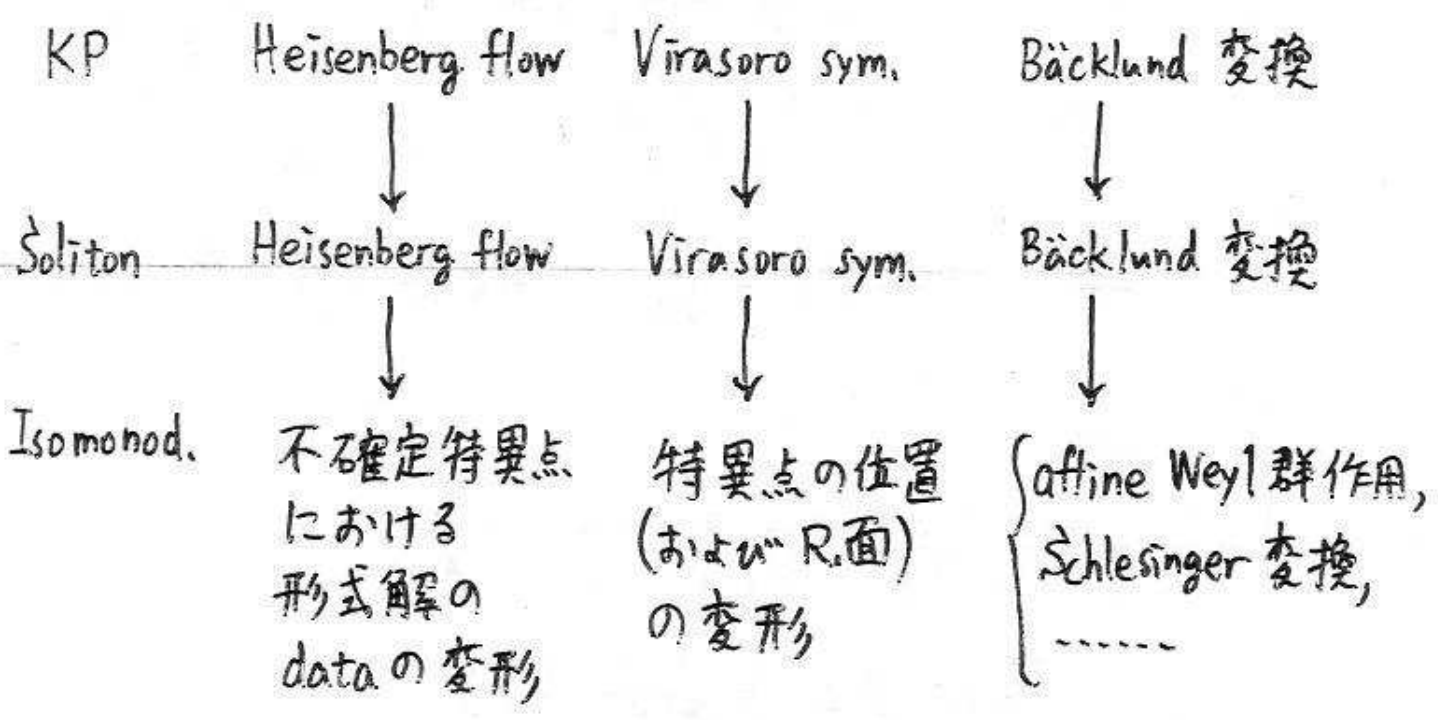 KP Heisenberg flow Virasoro sym. Bäcklund 変換
Soliton Heisenberg flow Virasoro sym. Bäcklund 変換
Isomonod.
不確定特異点
における
形式解の
dataの変形
特異点の位置
(および R.面)
の変形
affine Weyl群作用,
Schlesinger 変換,
......